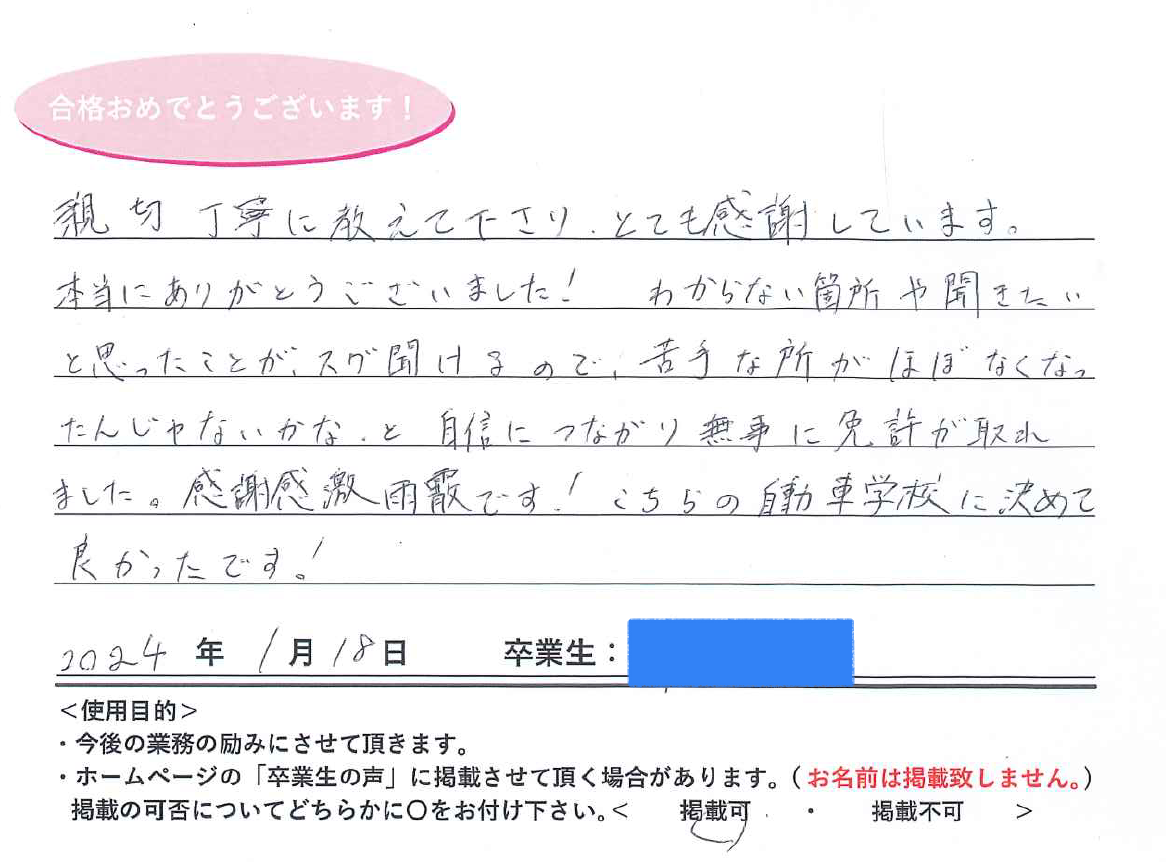 合格おめでとうございます!
親切丁寧に教えて下さり、とても感謝しています。
本当にありがとうございました! わからない箇所や聞きたい
と思ったことが、スグ聞けるので、苦手な所がほぼなくなっ
たんじゃないかな、と自信につながり無事に免許が取れ
ました。感謝感激雨霰です!こちらの自動車学校に決めて
良かったです!
2024年 1月18日 卒業生:
<使用目的>
・今後の業務の励みにさせて頂きます。
・ホームページの「卒業生の声」に掲載させて頂く場合があります。(お名前は掲載致しません。)
掲載の可否についてどちらかに〇をお付け下さい。< 掲載可 ・ 掲載不可 >